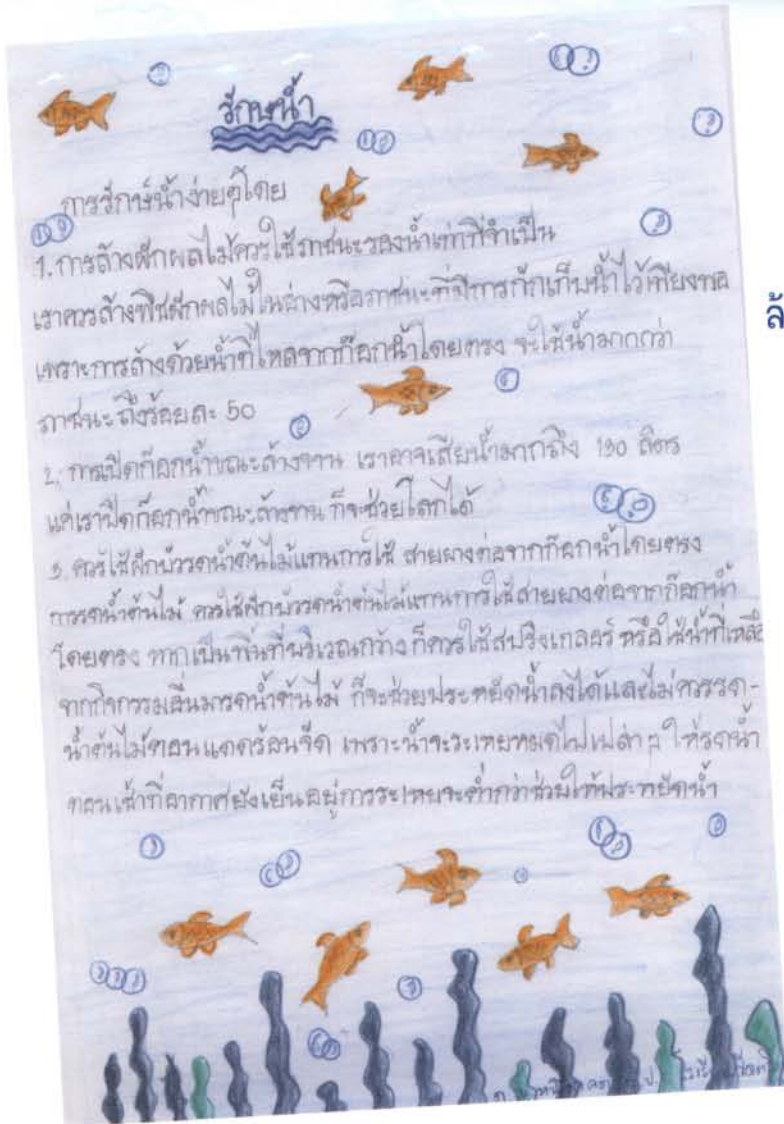 รักษน้ำ
การรักษ์น้ำง่ายๆโดย
1. การล้างผักผลไม้ควรใช้ภาชนะรองน้ำเท่าที่จำเป็น
เราควรล้างพืชผักผลไม้ในอ่างหรือภาชนะที่มีการกักเก็บน้ำไว้เพียงพอ
เพราะการล้างด้วยน้ำที่ไหลจากก๊อกน้ำโดยตรง จะใช้น้ำมากกว่า
ภาชนะถึงร้อยละ 50
2. การเปิดก๊อกน้ำขณะล้างจาน เราอาจเสียน้ำมากถึง 130 ลิตร
แค่เราปิดก๊อกน้ำขณะล้างจาน ก็จะช่วยโลกได้
3. ควรใช้ฝักบัวรดน้ำต้นไม้แทนการใช้ สายยางต่อจากก๊อกน้ำโดยตรง
การรดน้ำต้นไม้ ควรใช้ฝักบัวรดน้ำต้นไม้แทนการใช้สายยางต่อจากก๊อกน้ำ
โดยตรง หากเป็นพื้นที่บริเวณกว้าง ก็ควรใช้สปริงเกลอร์ หรือใช้น้ำที่เหลือ
จากกิจกรรมอื่นมารดน้ำต้นไม้ ก็จะช่วยประหยัดน้ำลงได้และไม่ควรรด-
น้ำต้นไม้ตอนแดดร้อนจัด เพราะน้ำจะระเหยหมดไปเปล่า ๆ ให้รดน้ำ
ตอนเช้าที่อากาศยังเย็นอยู่การระเหยจะต่ำกว่าช่วยให้ประหยัดน้ำ
ล้